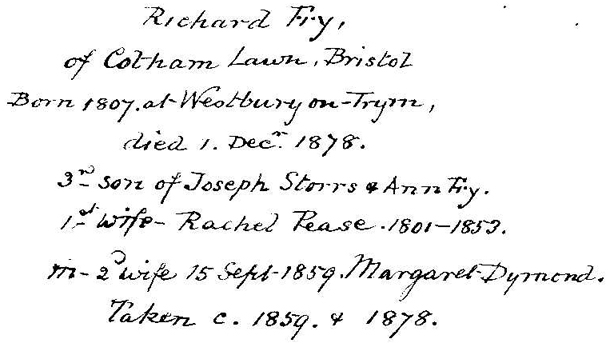 Richard Fry,
of Cotham Lawn, Bristol
Born 1807. at Westbury on-Trym,
died 1. Decr. 1878.
3rd son of Joseph Storrs & Ann Fry.
1st wife - Rachel Pease. 1801-1853.
m- 2d wife 15 Sept. 1859. Margaret Dymond.
Taken c. 1859. & 1878.